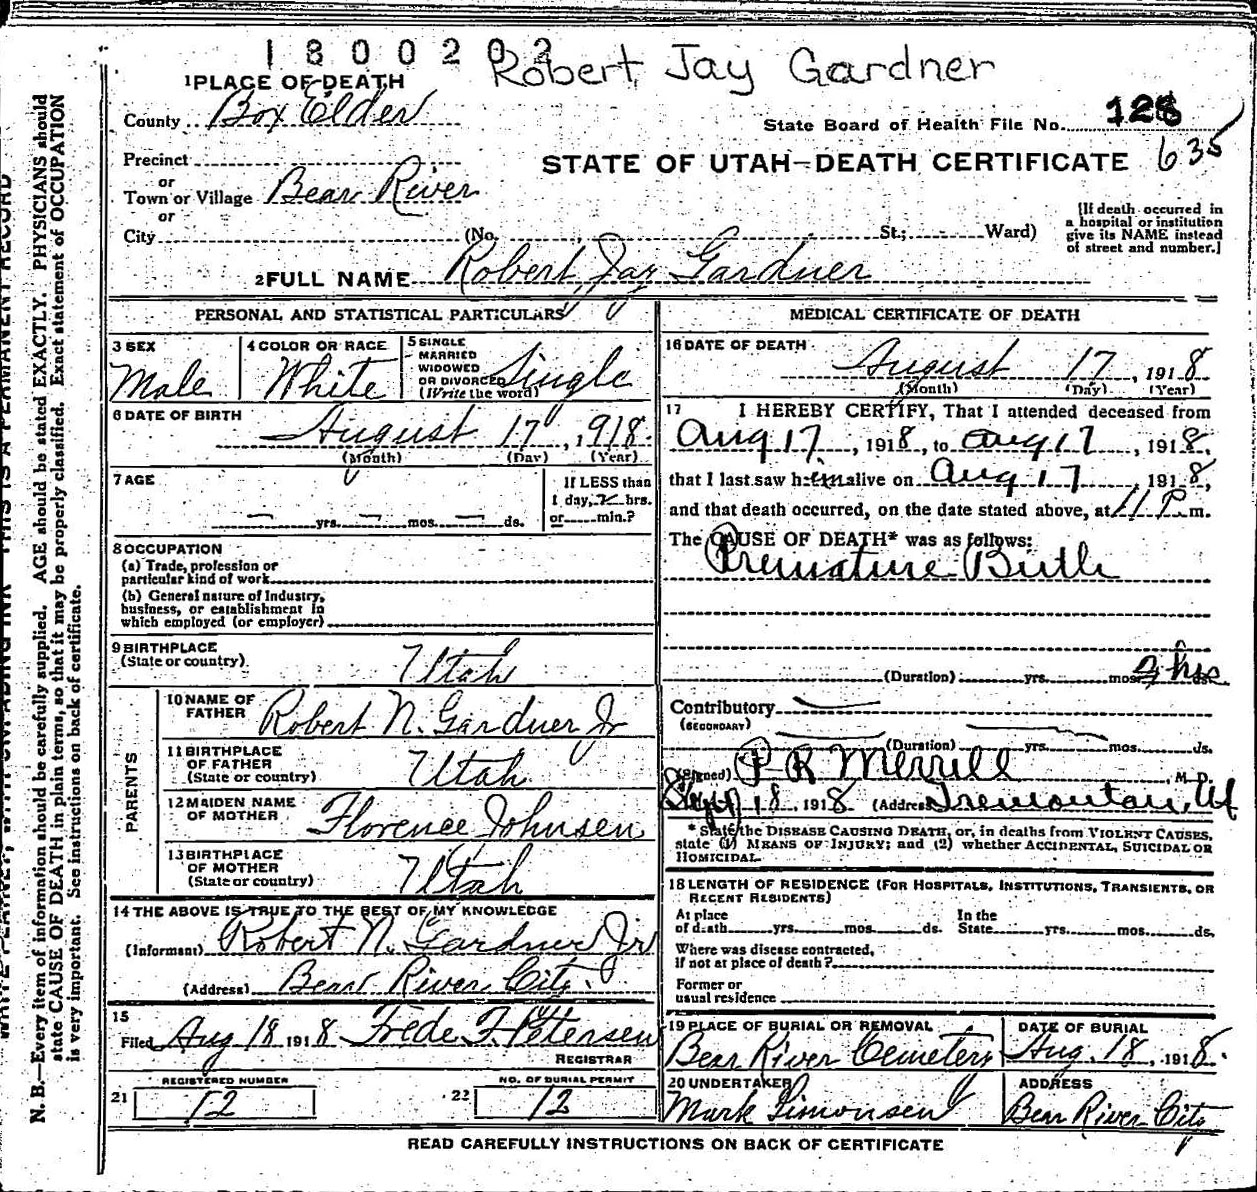 1800202 Robert Jay Gardner
1 PLACE OF DEATH
County Box Elder
State Board of Health File No. 128
635
Precinct
or
Town or Village Bear River
or
City (No. St.; Ward)
STATE OF UTAH—DEATH CERTIFICATE
[If death occurred in
a hospital or institution
give its NAME instead
of street and number.]
2 FULL NAME Robert Jay Gardner
PERSONAL AND STATISTICAL PARTICULARS
3 SEX
Male
4 COLOR OR RACE
White
5 SINGLE
MARRIED
WIDOWED
OR DIVORCED
(Write the word)
Single
6 DATE OF BIRTH
August 17, 1918.
(Month) (Day) (Year)
7 AGE
— yrs. — mos. — ds.
If LESS than
1 day, 2 hrs.
or min.?
8 OCCUPATION
(a) Trade, profession or
particular kind of work
(b) General nature of Industry,
business, or establishment in
which employed (or employer)
9 BIRTHPLACE
(State or country)
Utah
PARENTS
10 NAME OF
FATHER
Robert N. Gardner Jr
11 BIRTHPLACE
OF FATHER
(State or country)
Utah
12 MAIDEN NAME
OF MOTHER
Florence Johnsen
13 BIRTHPLACE
OF MOTHER
(State or country)
Utah
14 THE ABOVE IS TRUE TO THE BEST OF MY KNOWLEDGE
(Informant) Robert N. Gardner Jr
(Address) Bear River City.
15
Filed Aug 18 1918 Frede F. Petersen
REGISTRAR
REGISTERED NUMBER
21 12
NO. OF BURIAL PERMIT
22 12
MEDICAL CERTIFICATE OF DEATH
16 DATE OF DEATH
August 17, 1918
(Month) (Day) (Year)
17 I HEREBY CERTIFY, That I attended deceased from
Aug 17, 1918, to Aug 17, 1918,
that I last saw him alive on Aug 17, 1918,
and that death occurred, on the date stated above, at 11 P. m.
The CAUSE OF DEATH* was as follows:
Premature Birth
(Duration) yrs. mos. 2 hrs ds.
Contributory
(SECONDARY)
(Duration) yrs. mos. ds.
(Signed) P R Merrill, M. D.
Sept 18, 1918 (Address) Tremonton, Ut
* State the DISEASE CAUSING DEATH, or, in deaths from VIOLENT CAUSES,
state (1) MEANS OF INJURY; and (2) whether ACCIDENTAL, SUICIDAL OR
HOMICIDAL.
18 LENGTH OF RESIDENCE (FOR HOSPITALS, INSTITUTIONS, TRANSIENTS, OR
RECENT RESIDENTS)
At place
of death yrs. mos. ds.
In the
State yrs. mos. ds.
Where was disease contracted,
if not at place of death?
Former or
usual residence
19 PLACE OF BURIAL OR REMOVAL
Bear River Cemetery
DATE OF BURIAL
Aug. 18, 1918.
20 UNDERTAKER
Mark Simonsen
ADDRESS
Bear River City
READ CAREFULLY INSTRUCTIONS ON BACK OF CERTIFICATE
N. B.—Every item of information should be carefully supplied. AGE should be stated EXACTLY. PHYSICIANS should
state CAUSE OF DEATH in plain terms, so that it may be properly classified. Exact statement of OCCUPATION
is very important. See instructions on back of certificate.